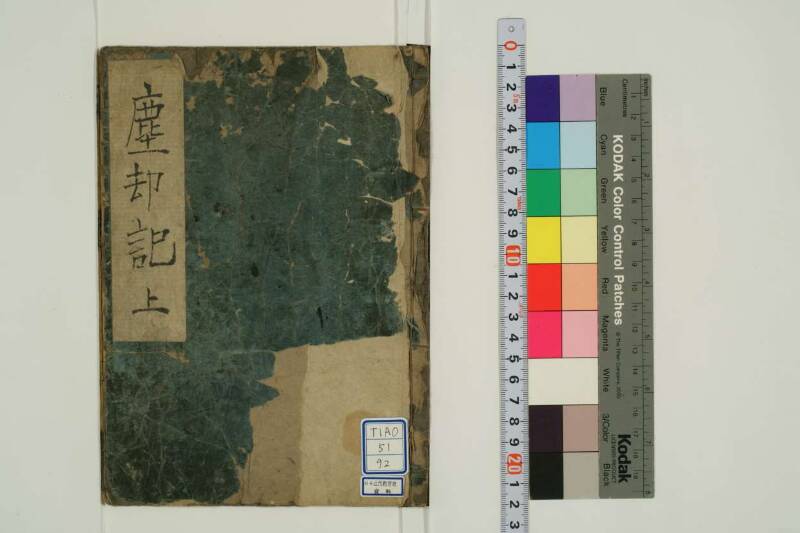 塵却記 上
TIAO
51
92
資料
0 1 2 3 4 5 6 7 8 9 10 1 2 3 4 5 6 7 8 9 20 1 2 3
KODAK Color Control Patches
© The Tiffen Company, 2000
Kodak
LICENSED PRODUCT
Centimetres
Inches
Blue
Cyan
Green
Yellow
Red
Magenta
White
3/Color
Black